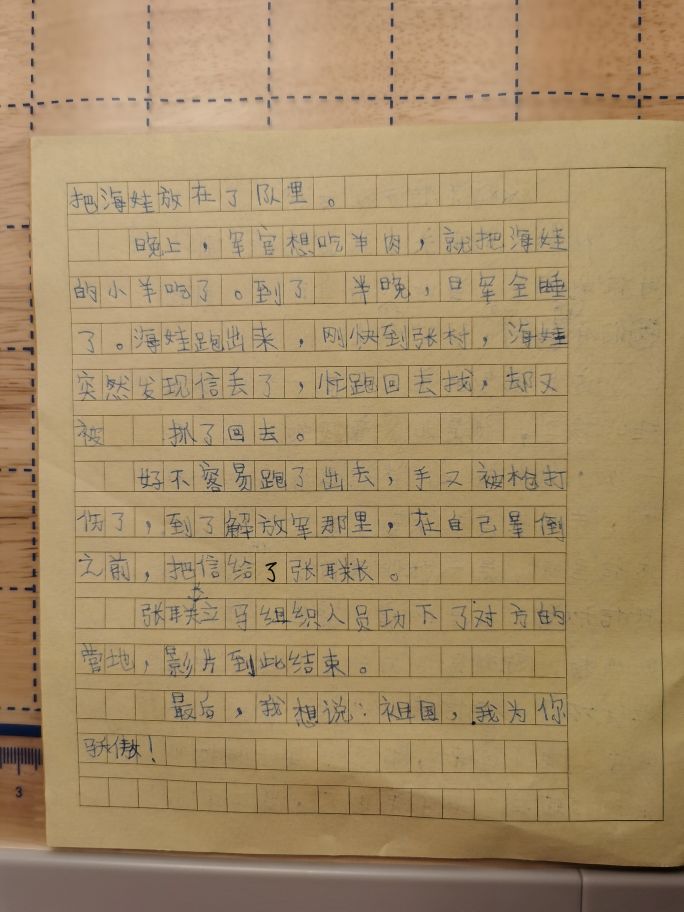 把海娃放在了队里。
晚上，军官想吃羊肉，就把海娃
的小羊吃了。到了 半晚，日军全睡
了。海娃跑出来，刚快到张村，海娃
突然发现信丢了，忙跑回去找，却又
被 抓了回去。
好不容易跑了出去，手又被枪打
伤了，到了解放军那里，在自己晕倒
之前，把信给了张联长。
张联立马组织人员攻下了对方的
营地，影片到此结束。
最后，我想说：祖国，我为你
骄傲！
3